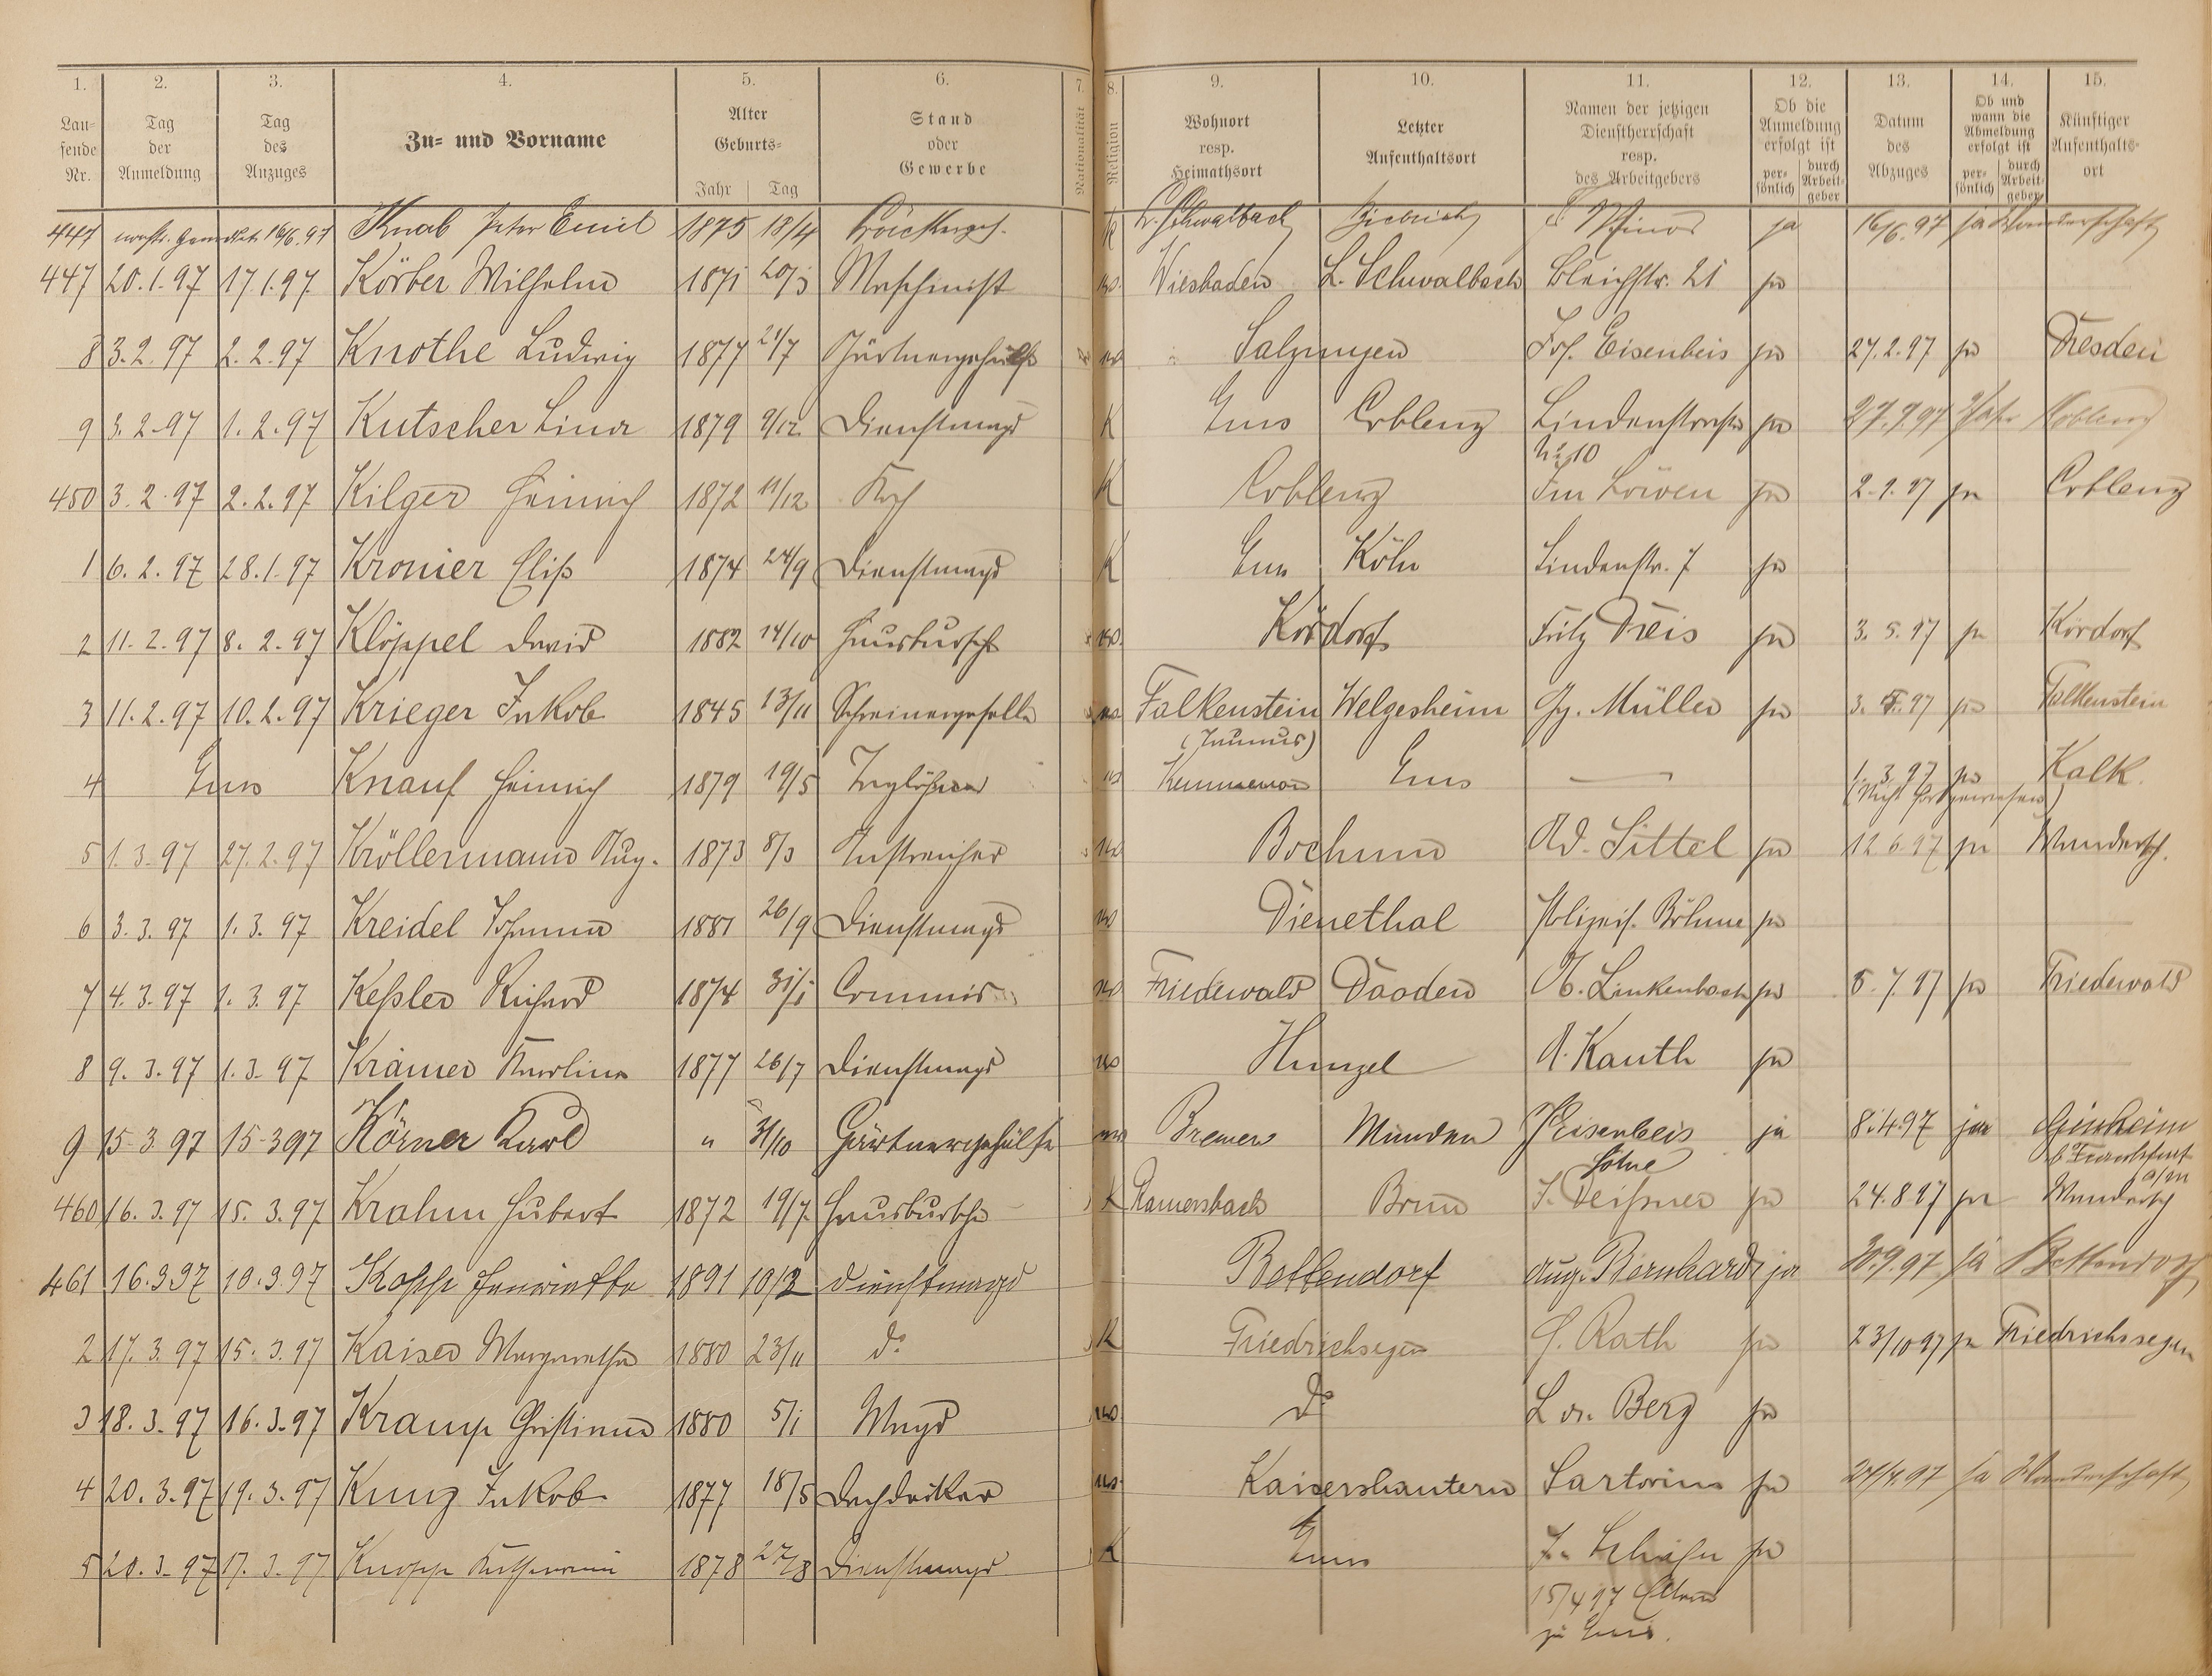 1. 2. 3. 4. 5. 6. 7. 8. 9. 10. 11. 12. 13. 14. 15.
Laufende Nr. Tag der Anmeldung Tag des Anzuges Zu- und Vorname Alter Geburts- Jahr Tag Stand oder Gewerbe Nationalität Religion Wohnort resp. Heimathsort Letzter Aufenthaltsort Namen der jetzigen Dienstherrschaft resp. des Arbeitgebers Ob die Anmeldung erfolgt ist persönlich durch Arbeitgeber Datum des Abzuges Ob und wann die Abmeldung erfolgt ist persönlich durch Arbeitgeber Künftiger Aufenthaltsort
447 16/6.97 Knab Peter Emil 1875 18/4 K L. Schwalbach Biebrich Minor ja 16/6.97 ja Wanderschaft
447 20.1.97 17.1.97 Körber Wilhelm 1871 20/3 Maschinist ev. Wiesbaden L. Schwalbach Bleichstr. 21 ja
8 3.2.97 2.2.97 Knothe Ludwig 1877 21/7 Gärtnergehülfe ev Salzungen Jos. Eisenbeis ja 27.2.97 ja Dresden
9 3.2.97 1.2.97 Kutscher Lina 1879 9/12 Dienstmagd K Ems Coblenz Lindenstrasse ja 27.7.97 Coblenz
No 10
450 3.2.97 2.2.97 Kilger Heinrich 1872 11/12 Koch K Coblenz Im Löwen ja 2.9.97 ja Coblenz
1 6.2.97 28.1.97 Kronier Elis 1874 24/9 Dienstmagd K Ems Köln Lindenstr. 7 ja
2 11.2.97 8.2.97 Klöppel David 1882 14/10 Hausbursche ev. Kördorf Fritz Dreis ja 3.5.97 ja Kördorf
3 11.2.97 10.2.97 Krieger Jakob 1845 13/11 Schreinergeselle ev. Falkenstein Welgesheim Gg. Müller ja 3.5.97 ja Falkenstein
(Taunus)
4 Ems Knauf Heinrich 1879 19/5 Taglöhner ev Kemmenau Ems — 1.3.97 ja Kalk.
(Nicht fortgewiesen)
5 1.3.97 27.2.97 Kröllermann Aug. 1873 8/3 Anstreicher ev Bochum Ad. Sittel ja 12.6.97 ja Wandersch.
6 3.3.97 1.3.97 Kreidel Johanna 1881 26/9 Dienstmagd ev Dienethal Polizeis. Böhme ja
7 4.3.97 1.3.97 Keßler Richard 1874 31/1 Commis ev Friedewald Daaden A. Linkenbach ja 5.7.97 ja Friedewald
8 9.3.97 1.3.97 Krämer Karoline 1877 26/7 Dienstmagd ev Hunzel A. Kauth ja
9 15.3.97 15.3.97 Körner Karl " 31/10 Gärtnergehülfe ev Bremen Münden J. Eisenbeis ja 8.4.97 ja Ginheim
Söhne b Frankfurt a/m
460 16.3.97 15.3.97 Krahm Hubert 1872 19/7. Hausbursche K Ramersbach Bonn J. Meißner ja 24.8.97 ja Wandersch
461 16.3.97 10.3.97 Kopp Henriette 1891 10/2 Dienstmagd Bettendorf Aug. Bernhard ja 30.9.97 ja Bettendorf
2 17.3.97 15.3.97 Kaiser Margaretha 1880 23/11 do K Friedrichsegen G. Rath ja 23/10 97 ja Friedrichssegen
3 18.3.97 16.3.97 Kramp Christiane 1880 5/1 Magd ev do L v. Berg ja
4 20.3.97 19.3.97 Kunz Jakob 1877 18/5 Dachdecker ev. Kaiserslautern Sartorius ja 24/4.97 ja Wanderschaft
5 20.3.97 17.3.97 Knopp Katharina 1878 27/8 Dienstmagd K Ems J. Schäfer ja
15/4 97 Eltern
zu Ems.